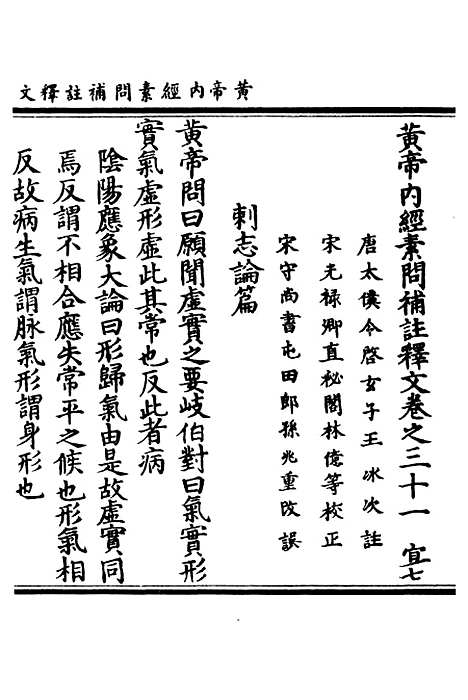 黃帝內經素問補註釋文
黃帝內經素問補註釋文卷之三十一 宜七
唐太僕令啓玄子王冰次註
宋光祿卿直秘閣林億等校正
宋守尚書屯田郎孫兆重改誤
刺志論篇
黃帝問曰願聞虛實之要岐伯對曰氣實形
實氣虛形虛此其常也反此者病
陰陽應象大論曰形歸氣由是故虛實同
焉反謂不相合應失常平之候也形氣相
反故病生氣謂脉氣形謂身形也